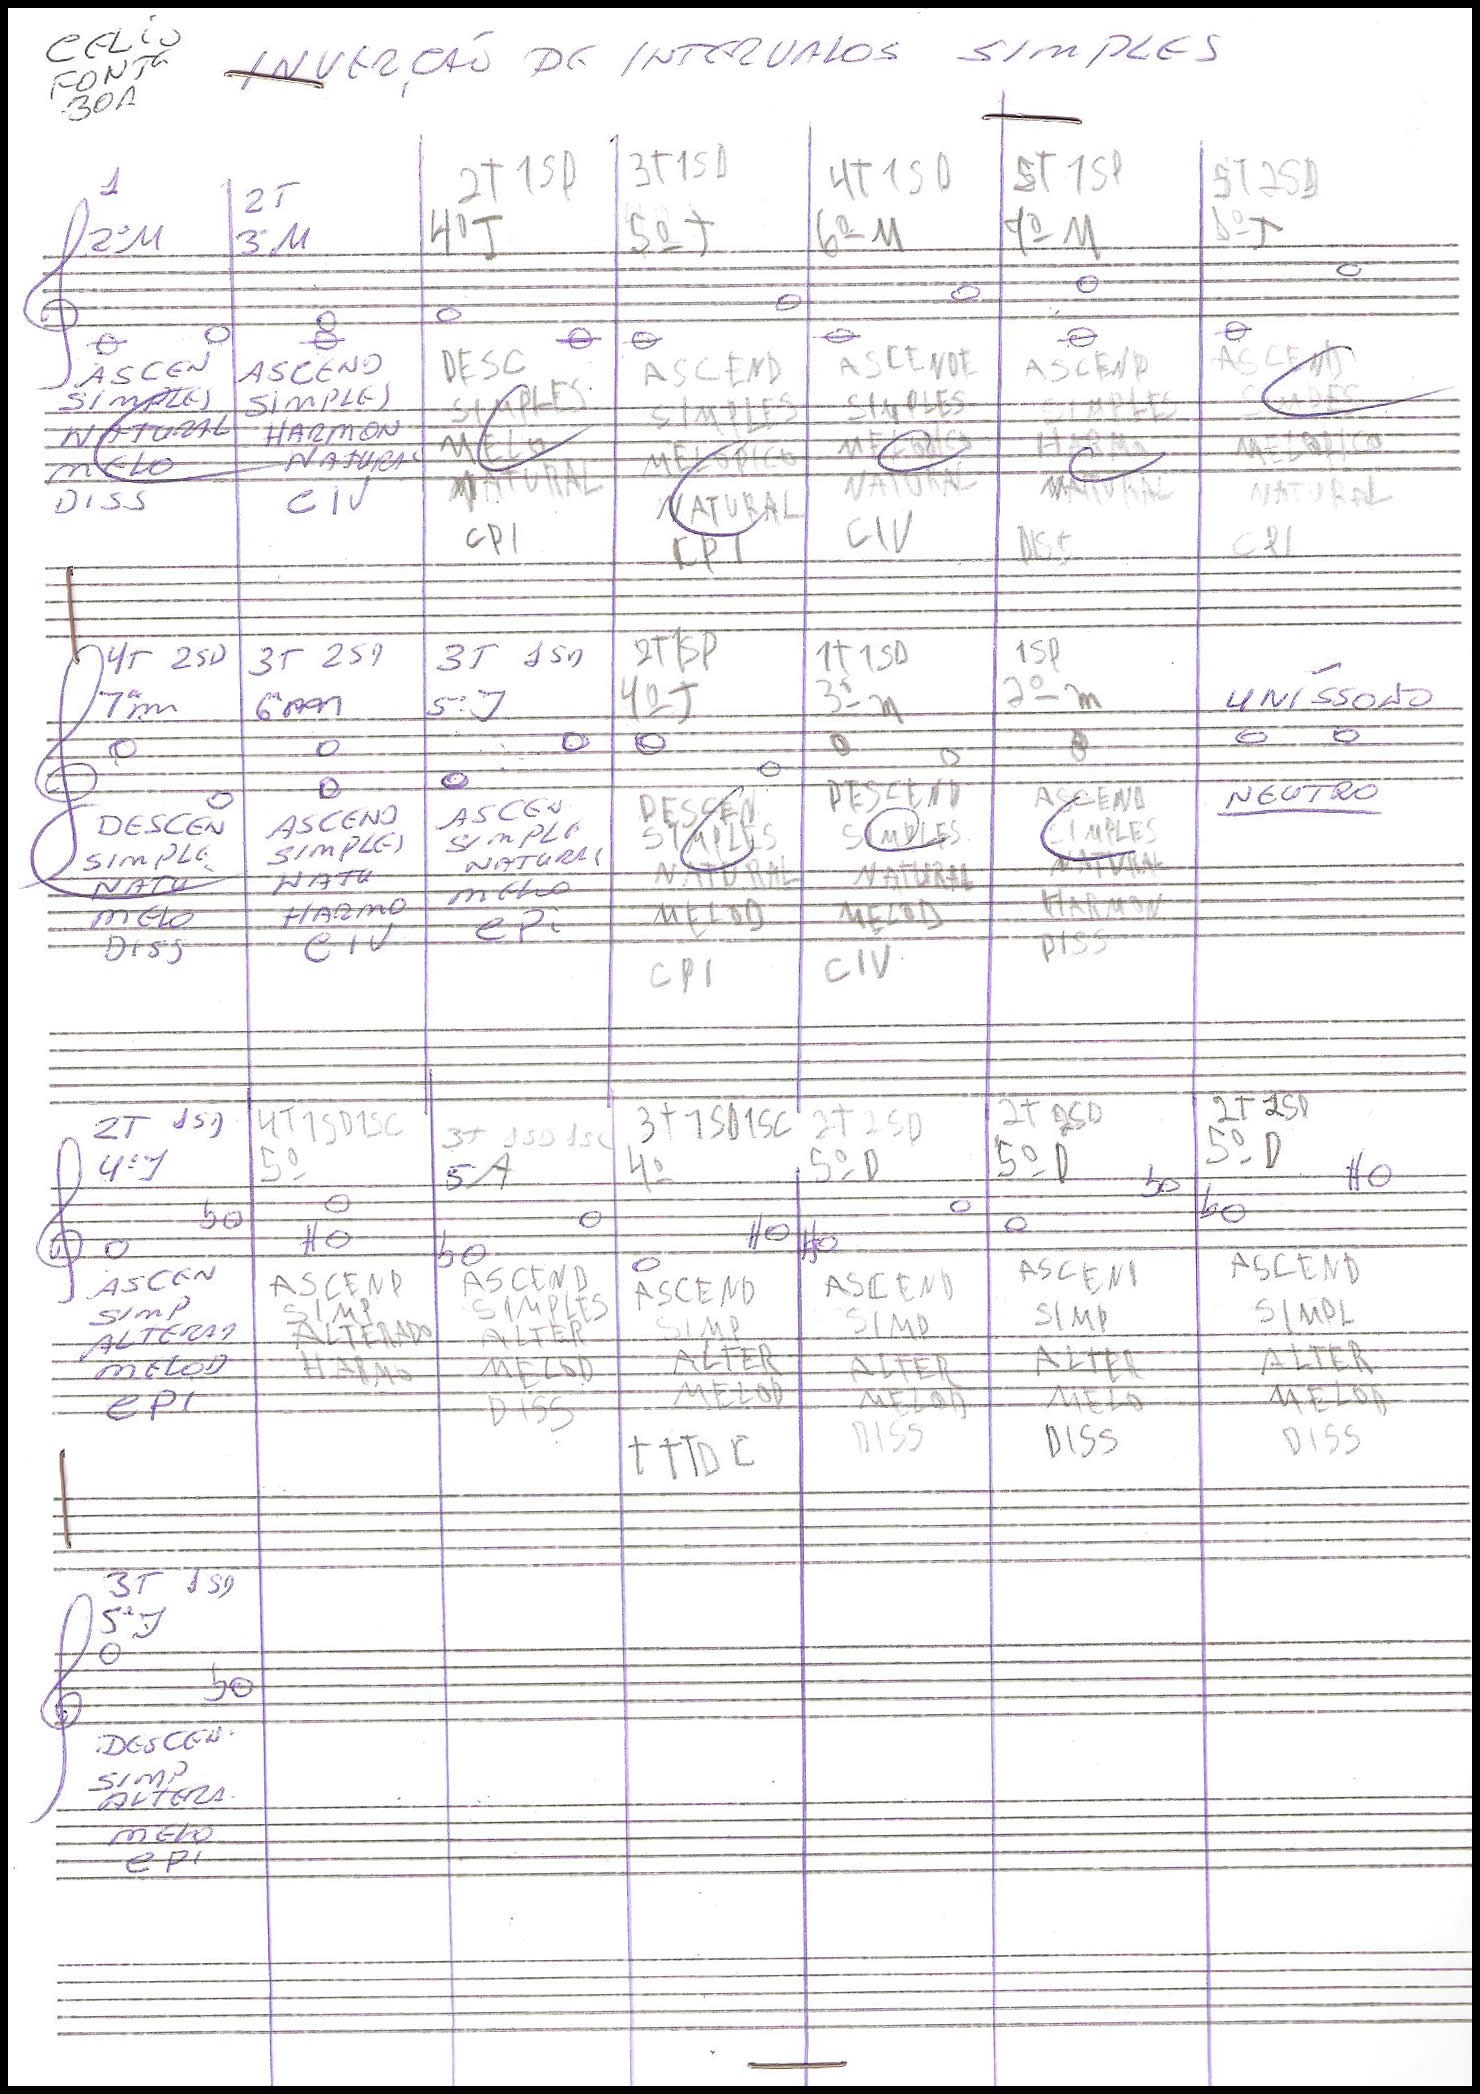 CELIO
FONTE
30A
INVERÇÃO DE INTERVALOS SIMPLES
1
2ªM
ASCEN
SIMPLES
NATURAL
MELO
DISS
2T
3ªM
ASCEND
SIMPLES
HARMON
NATURAL
CIV
2T 1SD
4ª J
DESC
SIMPLES
MELO
NATURAL
CPI
3T 1SD
5ª J
ASCEND
SIMPLES
MELODICO
NATURAL
CPI
4T 1SD
6ª M
ASCENDE
SIMPLES
MELODICO
NATURAL
CIV
5T 1SD
7ª M
ASCEND
SIMPLES
HARMO
NATURAL
DISS
5T 2SD
8ª J
ASCEND
SIMPLES
MELODICO
NATURAL
CPI
4T 2SD
7ªm
DESCEN
SIMPLE
NATU
MELO
DISS
3T 2SD
ASCEND
SIMPLES
NATU
HARMO
CIV
3T 1SD
5ª J
ASCEN
SIMPLE
NATURAL
MELO
CPI
2T 1SD
4ª J
DESCEN
SIMPLES
NATURAL
MELOD
CPI
1T 1SD
3ª m
DESCEND
SIMPLES
NATURAL
MELOD
CIV
1SD
2ª m
ASCEND
SIMPLES
NATURAL
HARMON
DISS
UNÍSSONO
NEUTRO
2T 1SD
4ª J
ASCEN
SIMP
ALTERAD
MELOD
CPI
4T1SD1SC
5ª
ASCEND
SIMP
ALTERADO
HARMO
3T 1SD 1SC
5A
ASCEND
SIMPLES
ALTER
MELOD
DISS
3T1SD1SC
4ª
ASCEND
SIMP
ALTER
MELOD
TTTDC
2T 2SD
5ª D
ASCEND
SIMP
ALTER
MELOD
DISS
2T 2SD
5ª D
ASCEND
SIMP
ALTER
MELO
DISS
2T 2SD
5ª D
ASCEND
SIMPL
ALTER
MELOD
DISS
3T 1SD
5ª J
DESCEN.
SIMP
ALTERA.
MELO
CPI